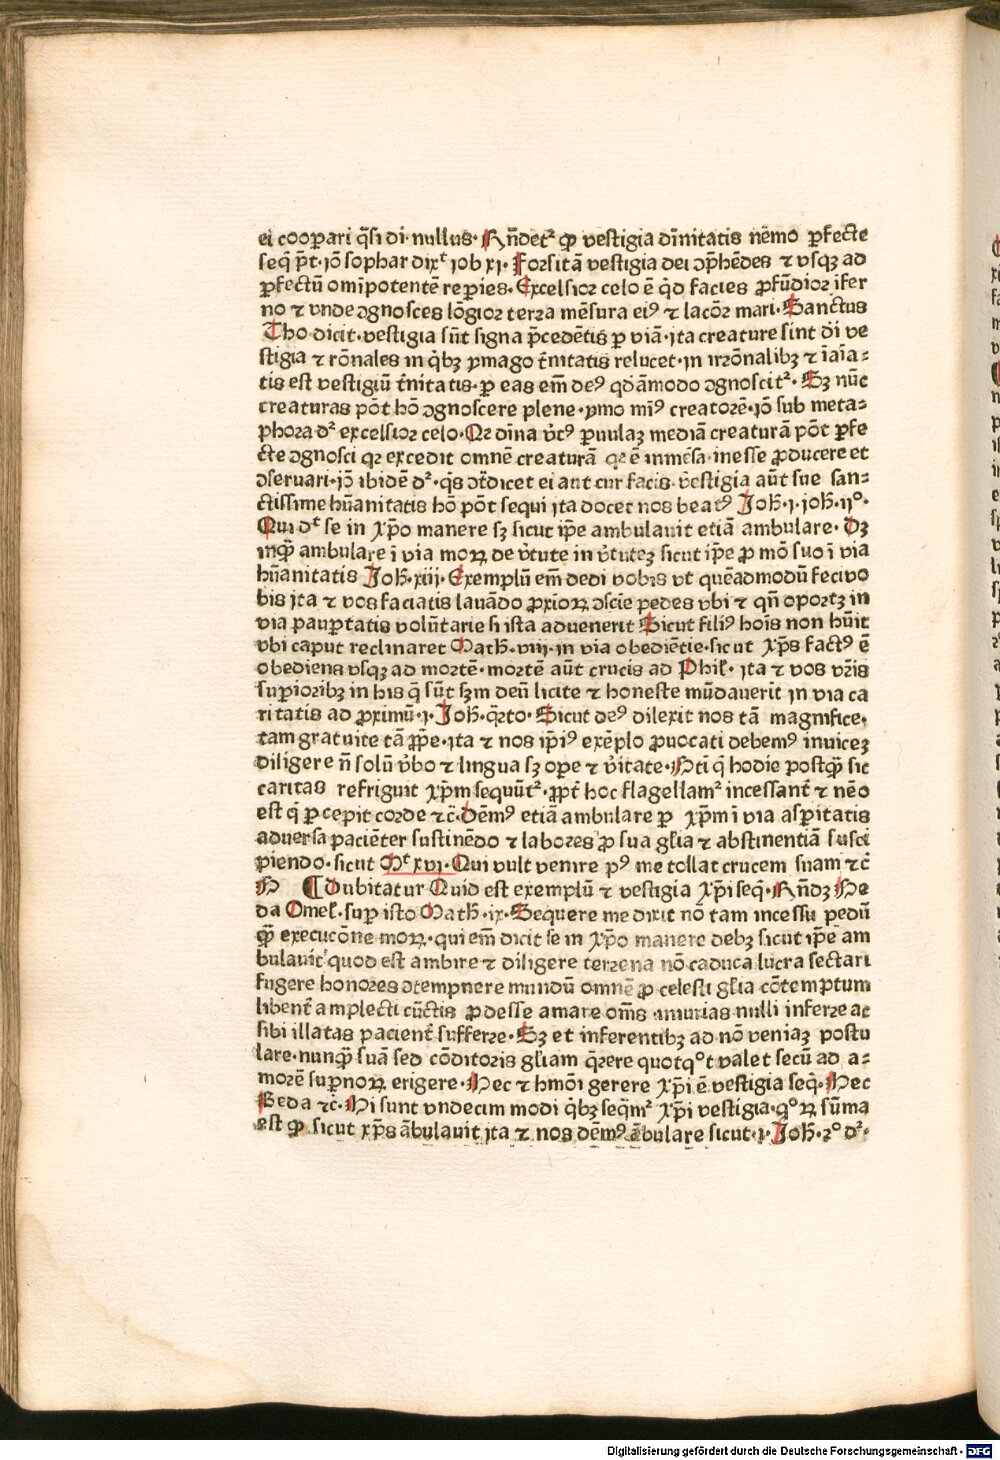 ei coopari q̄si di·nullus·Rn̄detᷣ ꝙ vestigia dīnitatis nēmo ꝑfecte
seq̄ p̄t·iō sophar dixͭ iob xj·Forsitā vestigia dei ꝯp̄hēdes ⁊ vsqꝫ ad
ꝑfectū omīpotentē reꝑies·Excelsior celo ē q̇d facies ꝓfūdior īfer
no ⁊ vnde ꝯgnosces lōgior terra mēsura eiꝰ ⁊ lacōr mari·Sanctus
Tho dicit·vestigia sūt signa p̄cedētis ꝑ viā·ita creature sint di̇ ve
stigia ⁊ rōnales in q̇bꝫ ymago t̄nitatis relucet·in irrōnalibꝫ ⁊ īaīa⸗
tis est vestigiū t̄nitatis·ꝑ eas em̄ deꝰ qd̓āmodo ꝯgnoscitᷣ·Sꝫ nūc
creaturas pōt hō ꝯgnoscere plene·ymo miꝰ creatorē·iō sub meta⸗
phora dᷣ excelsior celo·Qꝛ dīna v̓tꝰ ꝑ nulaꝫ mediā creaturā pōt ꝑfe
cte ꝯgnosci qꝛ excedit omnē creaturā qꝛ ē inmēsa·inesse ꝓducere et
ꝯseruari·iō ibidē dᷣ·q̇s ꝯt̄dicet ei aut cur facis·vestigia aūt sue san⸗
ctissime hūanitatis hō pōt sequi ita docet nos beatꝰ Joh̄·j·ioh̄·ijº·
Qui dͭ se in xp̄o manere sꝫ sicut ip̄e ambulauit etiā ambulare·Dꝫ
inq̄ꝫ ambulare ī via moꝝ de v̓tute in v̓tuteꝫ sicut ip̄e ꝓ mō suo ī via
hūanitatis Joh̄·xiij·Exemplū em̄ dedi vobis vt quēadmodū feci vo
bis ita ⁊ vos faciatis lauādo ꝓxioꝝ ꝯscīe pedes vbi ⁊ qn̄ oportꝫ in
via pauꝑtatis volūtarie si ista aduenerit Sicut filiꝰ hoīs non hūit
vbi caput reclinaret Math̄·viij·in via obediētie·sicut xp̄s factꝰ ē
obediens vsqꝫ ad mortē·mortē aūt crucis ad Phil̄·ita ⁊ vos vr̄is
suꝑioribꝫ in his q̄ sūt sꝫm deū licite ⁊ honeste mūdauerīt in via ca
ritatis ad ꝓximū·j·Joh̄·q̄rto·Sicut deꝰ dilexit nos tā magnifice·
tam gratuite tā ꝓp̄e·ita ⁊ nos ip̄iꝰ exēplo ꝓuocati debemꝰ inuiceꝫ
diligere n̄ solū v̓bo ⁊ lingua sꝫ oꝑe ⁊ v̓itate·Nti̓ q̇ hodie postq̄ꝫ sic
caritas refriguit xp̄m sequūtᷣ·ꝓpt̄ hoc flagellamᷣ incessant̄ ⁊ nēo
est q̇ ꝑcepit corde ⁊c̄·Dēmꝰ etiā ambulare ꝑ xp̄m ī via asꝑitatis
aduersa paciēter sustinēdo ⁊ labores ꝓ sua gl̄ia ⁊ abstinentiā susci
piendo·sicut Mͭ xvj·Qui vult venire pꝰ me tollat crucem suam ⁊c̄
H ¶ Dubitatur Quid est exemplū ⁊ vestigia xp̄i seq̄·Rn̄dꝫ Be
da Omel̄·suꝑ isto Math̄·ix·Sequere me dixit nō tam incessu pedū
q̄ꝫ execucōne moꝝ·qui em̄ dicit se in xp̄o manere debꝫ sicut ip̄e am
bulauit quod est ambire ⁊ diligere terrena nō caduca lucra sectari
fugere honores ꝯtempnere mundū omnē ꝓ celesti gl̄ia cōtemptum
libent̄ amplecti cūctis ꝓdesse amare om̄s iniurias nulli inferre ac
sibi illatas pacient̄ sufferre·Sꝫ et inferentibꝫ ad nō veniaꝫ postu
lare·nunq̄ꝫ suā sed cōditoris gl̄iam q̄rere quotqºt valet secū ad a⸗
morē suꝑnoꝝ erigere·Hec ⁊ hmōi gerere xp̄i ē vestigia seq̄·Hec
Beda ⁊c̄·Hi sunt vndecim modi q̇bꝫ seq̄mᷣ xp̄i vestigia·qºꝝ sūma
est ꝙ sicut xp̄s ābulauit ita ⁊ nos dēmꝰ ābulare sicut·j·Joh̄·2º dᷣ·
Digitalisierung gefördert durch die Deutsche Forschungsgemeinschaft - DFG